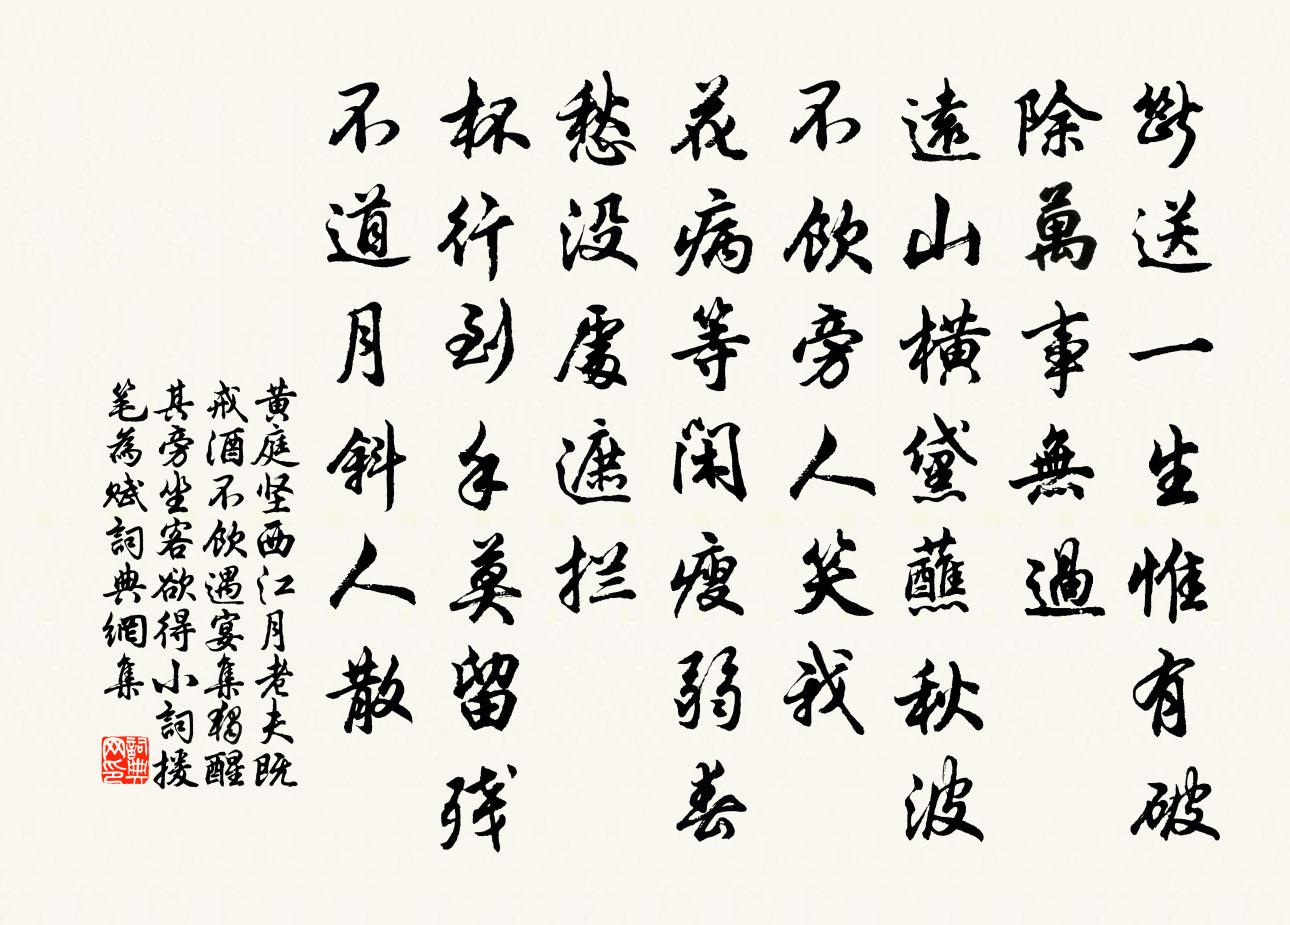 斷送一生惟有破
除萬事無過
遠山橫黛蘸秋波
不飲旁人笑我
花病等閑瘦弱春
愁没處遮拦
杯行到手莫留残
不道月斜人散
黄庭坚西江月老夫既
戒酒不飲遇宴集獨醒
其旁坐客欲得小詞援
笔為赋詞典網集
詞典网印